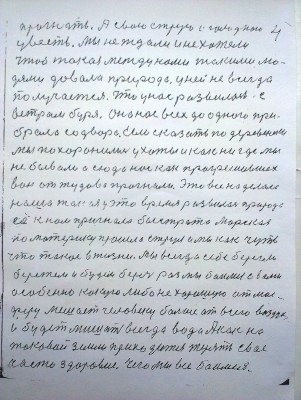 прогнать. А свою струю с годной 4
увесть. Мы не ждали и не хотели
чтоб такая между нами такими лю-
дями довала природа, у ней не всегда
получается. Что у нас развилось - с
ветрам буря. Она нас всех до одного при-
брала со двора. Если сказать по деревянному
мы похоронили у хаты и как ни где мы
не бывали а сюда нас как прогрешивших
вон оттудова прогнали. Это все наделала
наша такая у это время развитая природа
её к нам пригнала быстрата Морская
по материку прошла струя и мы как чуть
что такое в жизни. Мы всегда себе берегли
бережем и будем береч раз мы боимся
особенно какую либо не хорошую
мешает человеку более от всего воздух
и будет мешать всегда вода А как на
таковой земли приходится терять свае
часто здоровие. Чего мы все боимся.